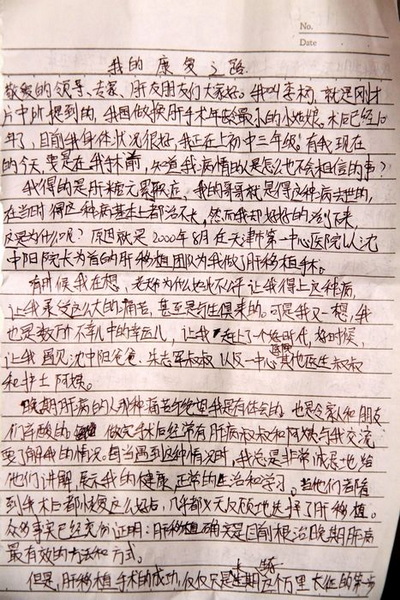 No.
Date
我的康复之路
敬爱的领导、专家、肝友朋友们大家好。我叫李杨,就是刚才
片中所提到的,我国做换肝手术年龄最小的小姑娘,术后已经10
年了,目前我身体状况很好,我正在上初中三年级。有我现在
的今天,要是在我手术前,知道我病情的人是怎么也不会相信的事?
我得的是肝糖元累积症,我的哥哥就是得这种病去世的,
在当时得这种病基本上都治不大,然而我却好好的活下来,
这是为什么呢?原因就是2000年8月在天津市第一中心医院以沈
中阳院长为首的肝移植团队为我做了肝移植手术。
有时候我在想,老天为什么这么不公平让我得上这种病,
让我承受这么大的痛苦,甚至是与生俱来的。可是我又一想,我
也是数万不幸儿中的幸运儿,让我赶上了一个好时代,好时候,
让我遇见沈中阳爸爸、朱志军叔叔以及一中心其他医生叔叔
和护士阿姨。
晚期肝病的人那种痛苦与绝望我是有体会的,也是令家人和朋友
们辛酸的。做完手术后经常有肝病叔叔和阿姨与我交流,
要了解我的情况。每当遇到这种情况时,我总是非常诚恳地给
他们讲解,展示我的健康,正常的生活和学习。当他们都看
到手术后都恢复这么好后,几乎都义无反顾地选择了肝移植。
众多事实已经充份证明:肝移植确实是目前根治晚期肝病
最有效的方法和方式。
但是,肝移植手术的成功,仅仅只是万里长征的第一步